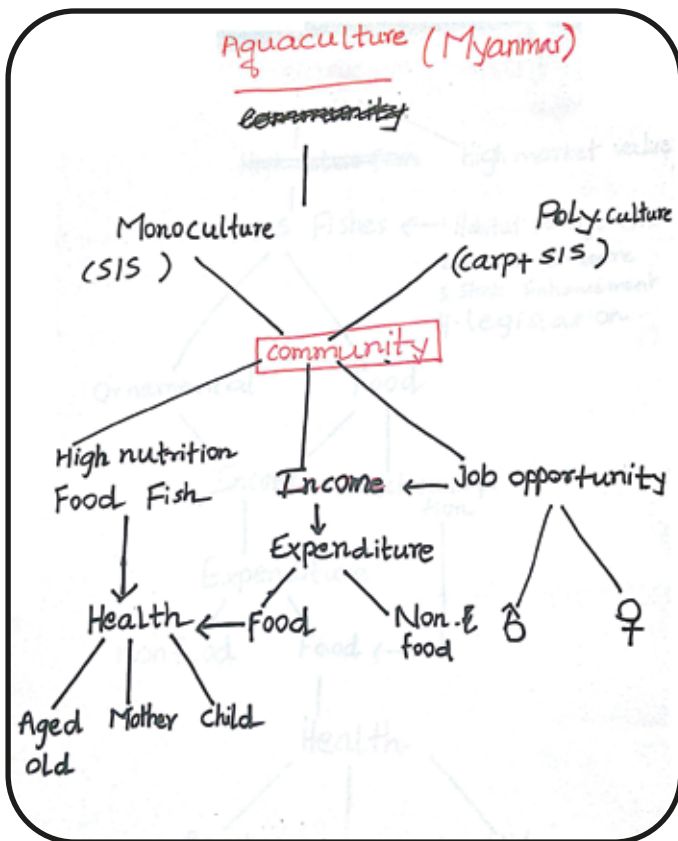 Aquaculture (Myanmar)
community
Monoculture
(SIS)
Poly.culture
(carp+ SIS)
community
High nutrition
Food Fish
Income
Job opportunity
Expenditure
Health
Food
Non.
food
♂
♀
Aged
old
Mother
child